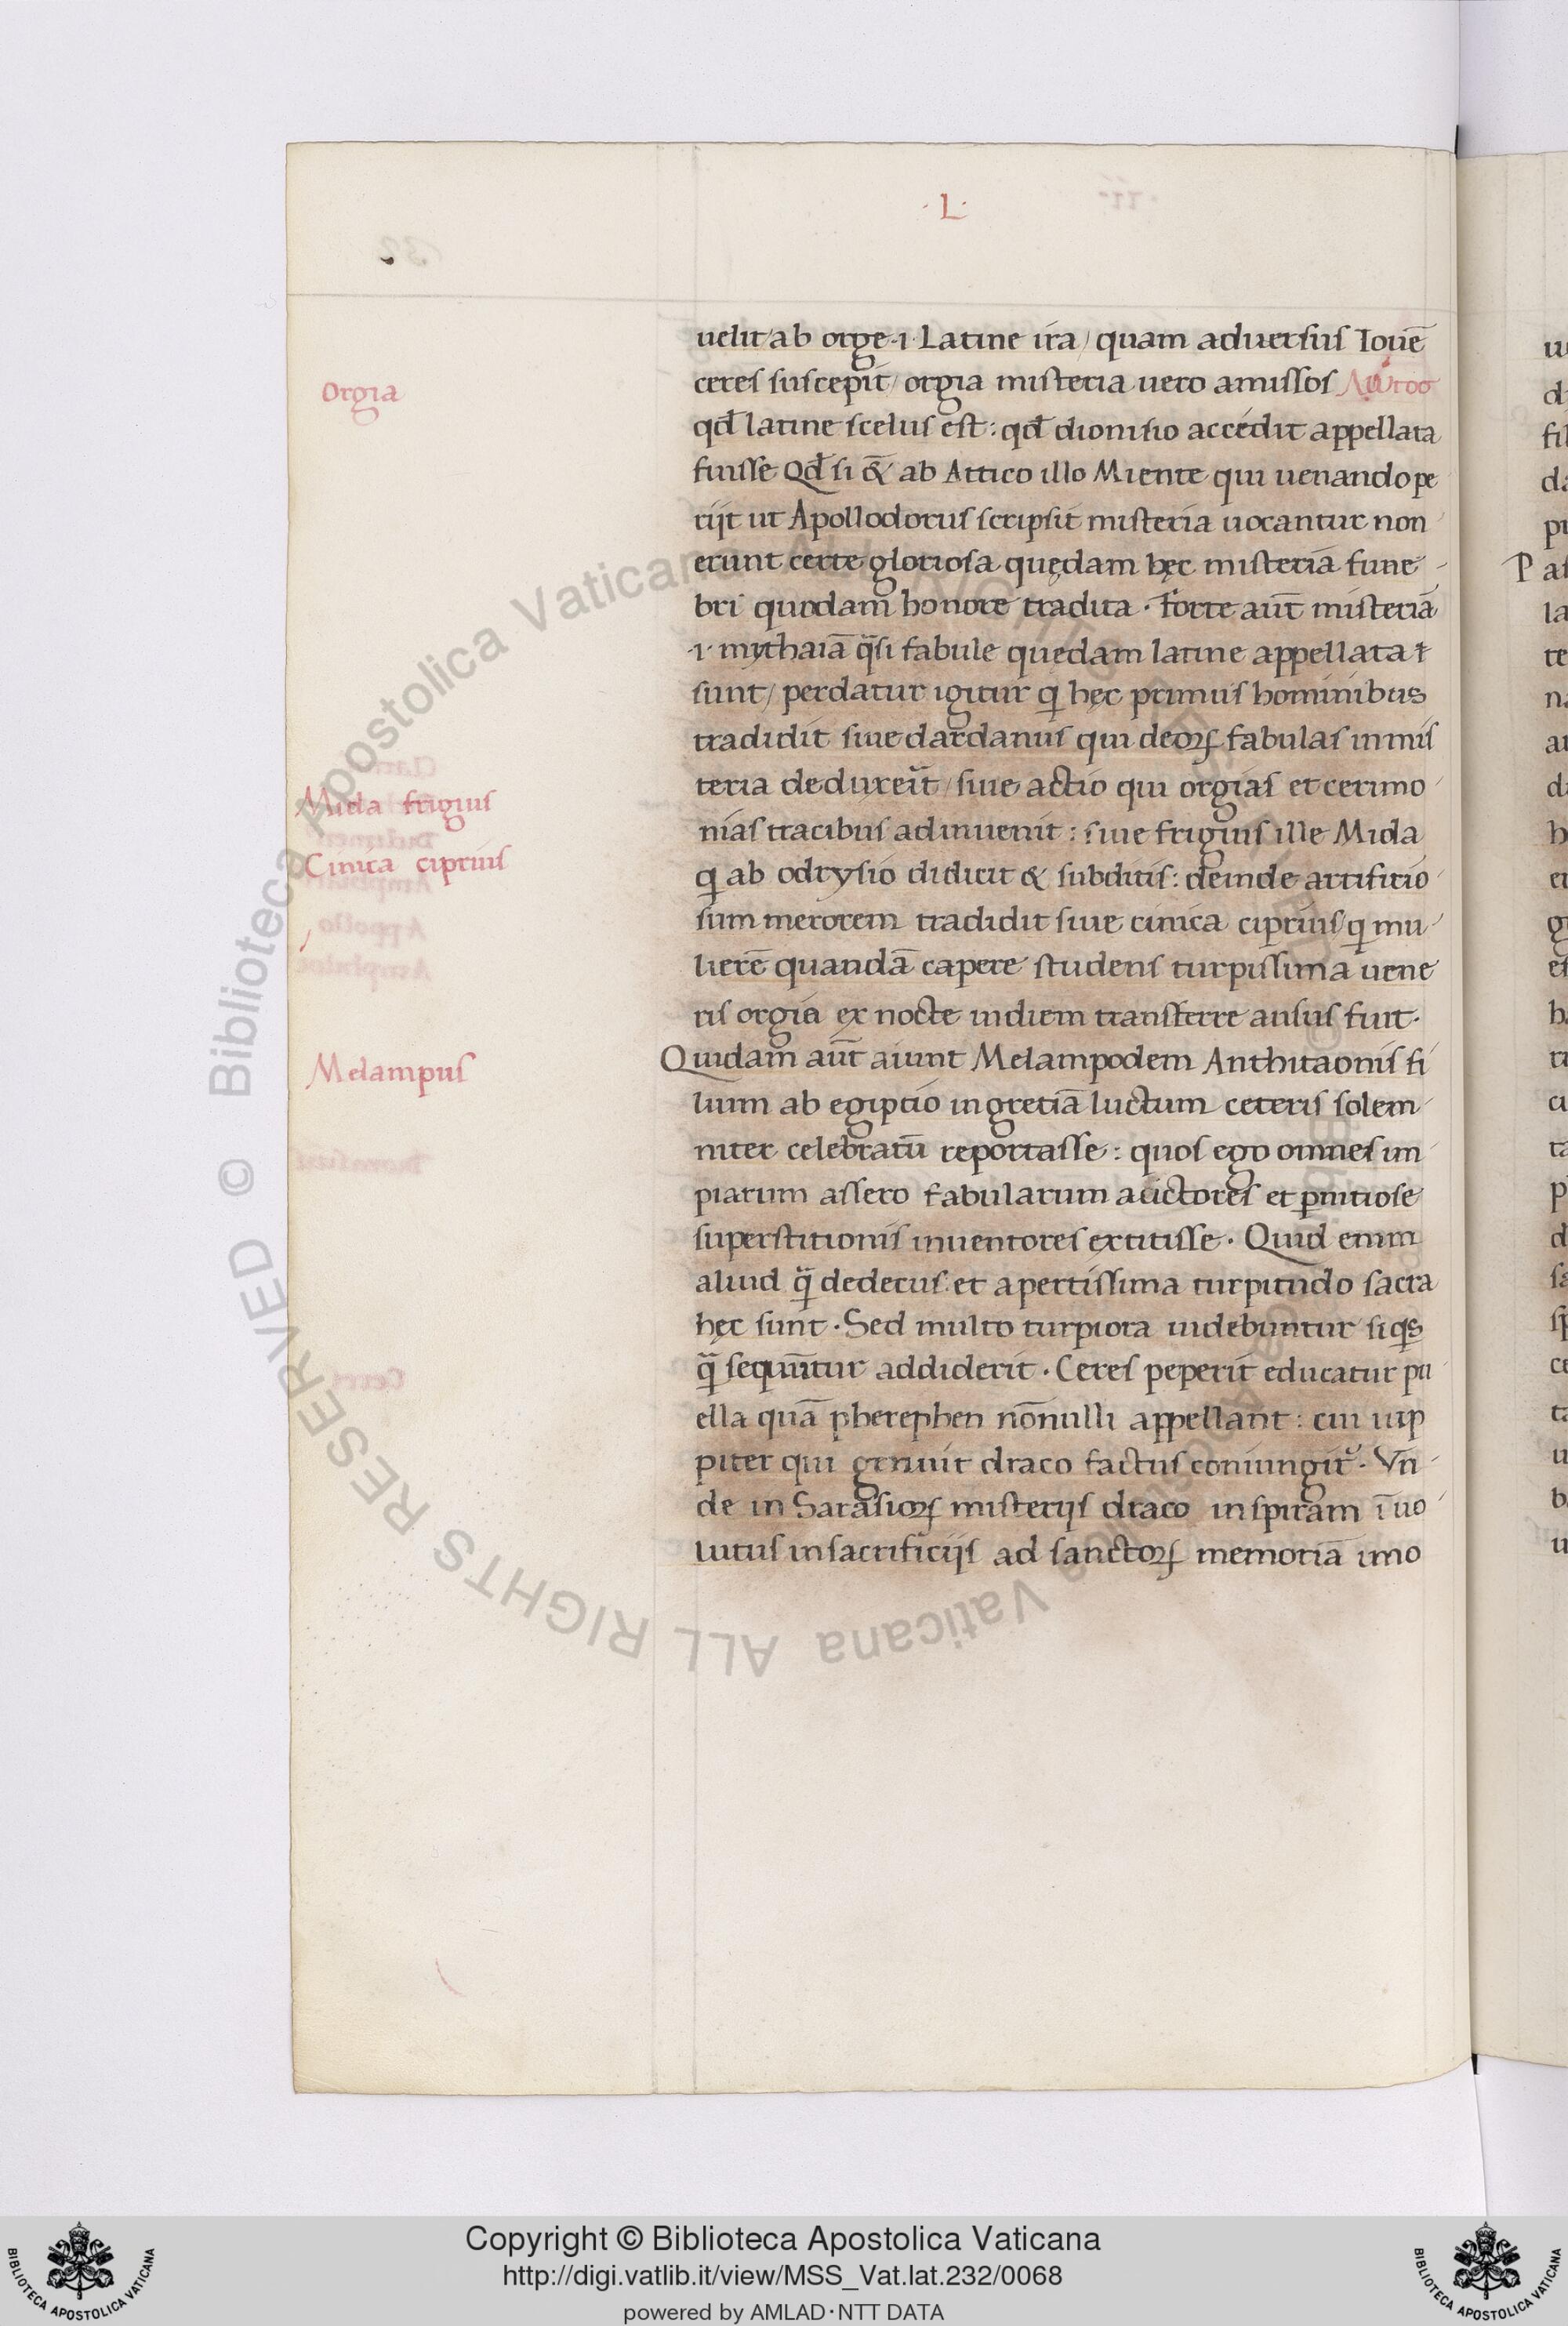 ·L·
uelit/ab orge·i·Latine ira/quam aduersus Iouē
Orgia
ceres suscepit/orgia misteria uero amissos
qđ latine scelus est: qđ dionisio accedit appellata
fuisse Qđ si & ab Attico illo Miente qui uenando pe
rijt ut Apollodorus scripsit misteria uocantur non
erunt certe gloriosa quędam hęc misteria fune
bri quodam honore tradita · Forte aut̄ misteria
·i· mythaia q̄si fabule quedam latine appellata
sunt/perdatur igitur q hęc primus hominibus
tradidit siue dardanus qui deoꝝ fabulas in mis
teria deduxerit/siue actio qui orgias et cerimo
Mida frigius
nias tracibus adinuenit: siue frigius ille Mida
Cinica ciprius
q ab odrysio didicit & subditis: deinde artificio
sum merorem tradidit siue cinica ciprius/q mu
lierē quandā capere studens turpissima uene
ris orgia ex nocte in diem transferre ausus fuit·
Melampus
Quidam aut̄ aiunt Melampodem Anthitaonis fi
lium ab egiptio in gretiā luctum ceteris solem
niter celebratū reportasse: quos ego omnes im
piarum assero fabularum auctores et ꝑnitiose
superstitionis inuentores extitisse · Quid enim
aliud q̄ dedecus et apertissima turpitudo sacra
hęc sunt · Sed multo turpiora uidebuntur siqs
q̄ sequūtur addiderit · Ceres peperit educatur pu
ella quā pherephen nōnulli appellant: cui iup
piter qui genuit draco factus coniungit᷑ · Vn
de in Sarasioꝝ misterijs draco in spiram īuo
lutus in sacrificijs ad sanctoꝝ memoriā imo
Copyright © Biblioteca Apostolica Vaticana
http://digi.vatlib.it/view/MSS_Vat.lat.232/0068
powered by AMLAD·NTT DATA
BIBLIOTECA APOSTOLICA VATICANA
BIBLIOTECA APOSTOLICA VATICANA
© Biblioteca Apostolica Vaticana ALL RIGHTS RESERVED
© Biblioteca Apostolica Vaticana ALL RIGHTS RESERVED